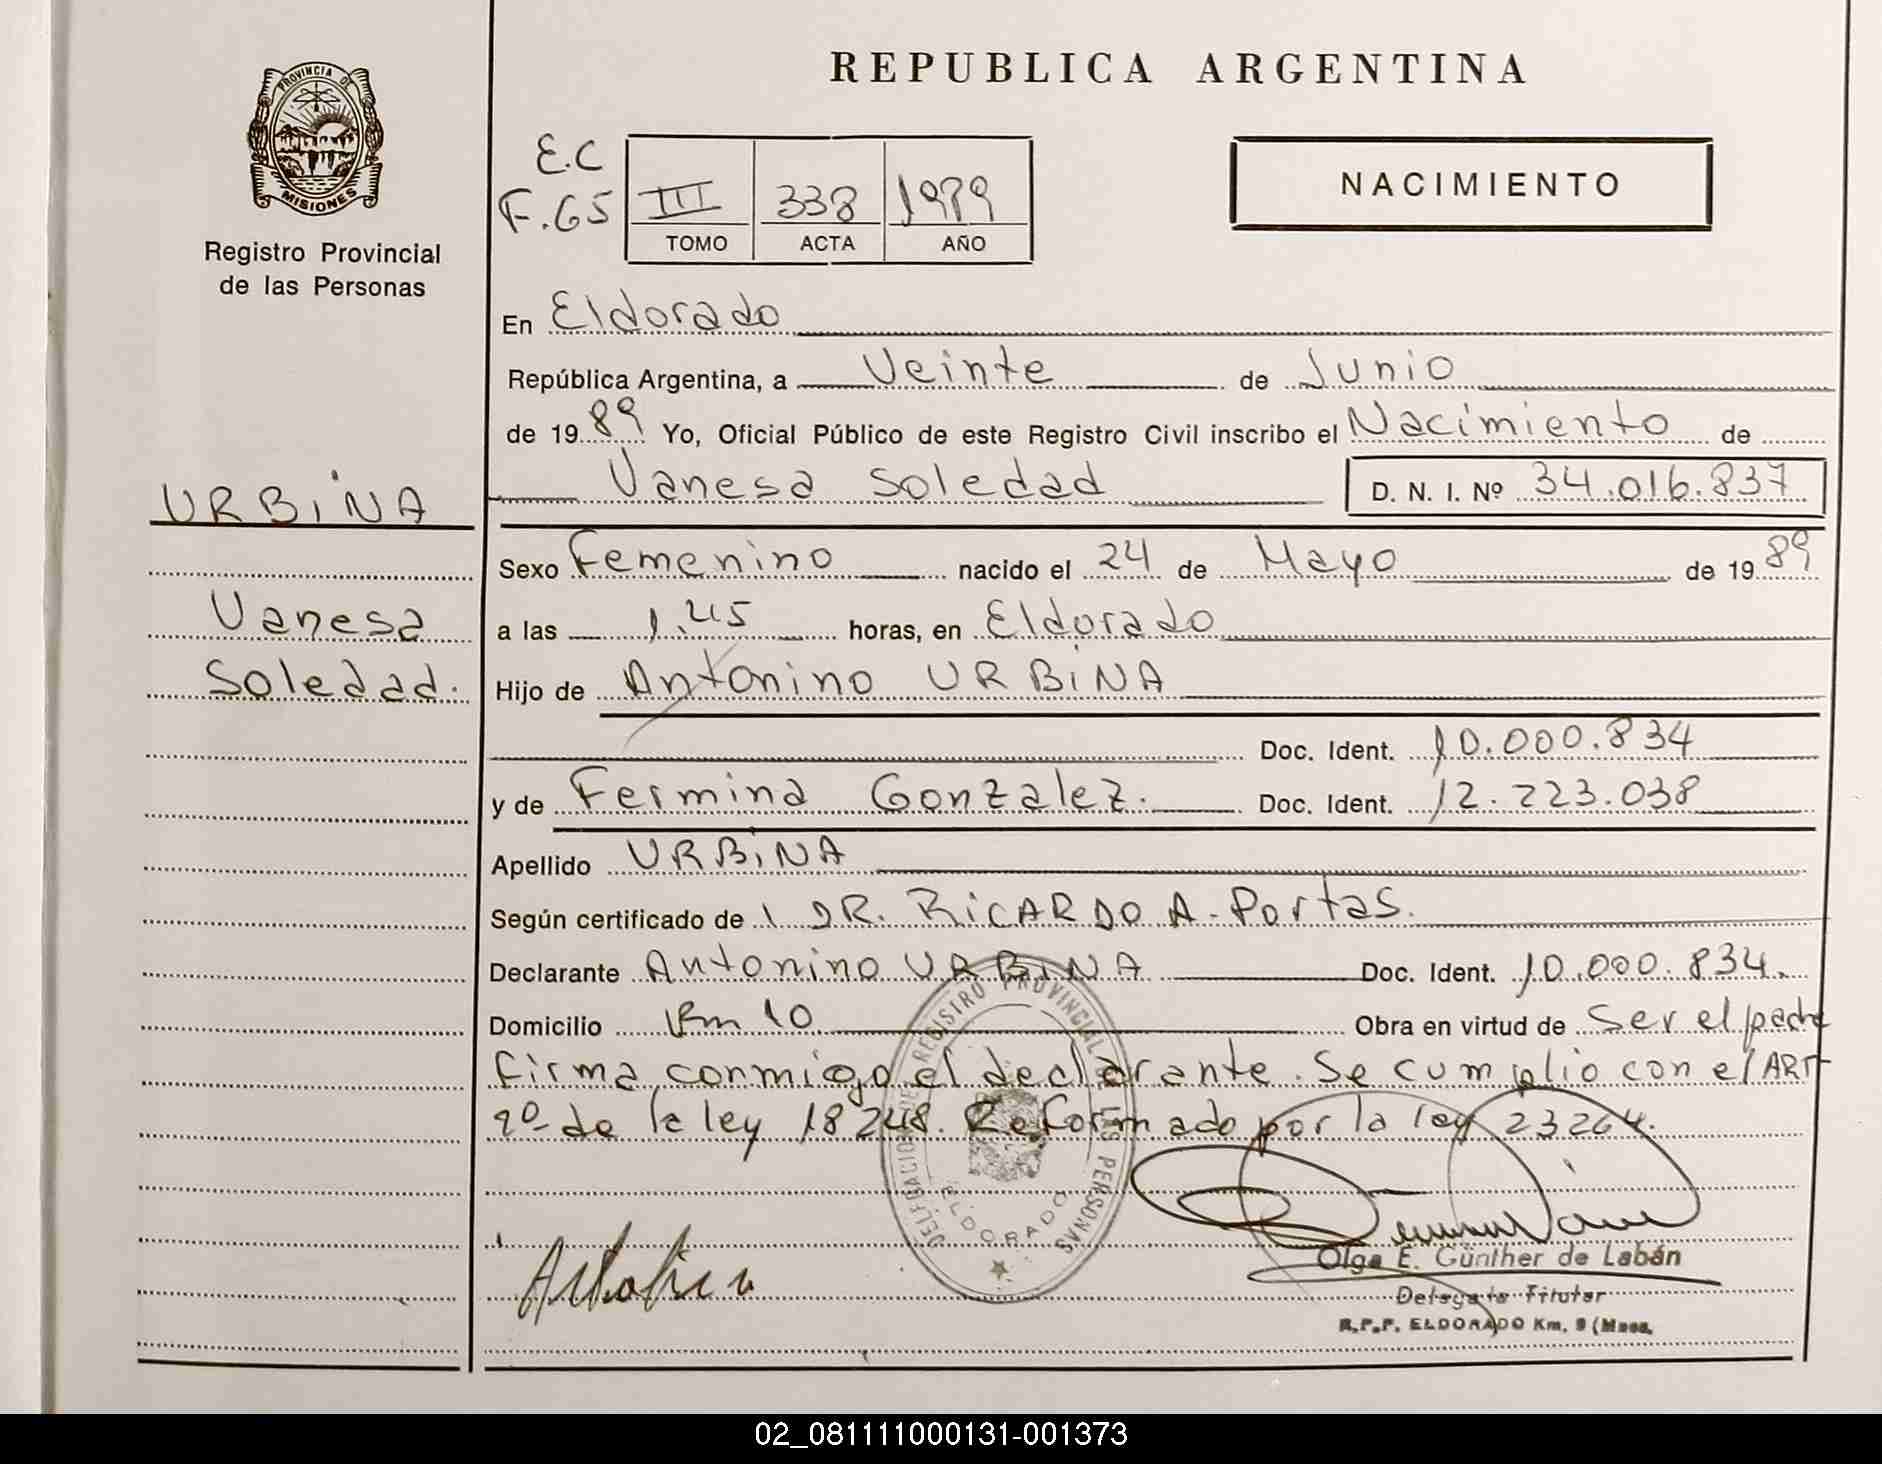 REPUBLICA ARGENTINA
PROVINCIA DE
MISIONES
Registro Provincial
de las Personas
E.C
F.65
III 338 1989
TOMO ACTA AÑO
NACIMIENTO
En Eldorado
República Argentina, a Veinte de Junio
de 1989 Yo, Oficial Público de este Registro Civil inscribo el Nacimiento de
Vanesa Soledad D. N. I. Nº 34.016.837
URBINA
Vanesa
Soledad.
Sexo Femenino nacido el 24 de Mayo de 1989
a las 1.45 horas, en Eldorado
Hijo de Antonino URBINA
Doc. Ident. 10.000.834
y de Fermina Gonzalez. Doc. Ident. 12.223.038
Apellido URBINA
Según certificado de DR. RICARDO A. Portas.
Declarante Antonino URBINA Doc. Ident. 10.000.834.
Domicilio Km 10 Obra en virtud de Ser el padre
firma conmigo el declarante. Se cumplio con el ART
2º de la ley 18248. Reformado por la ley 23264.
REGISTRO PROVINCIAL DE LAS PERSONAS
ELDORADO
Olga E. Günther de Labán
Delegada Titular
R.P.P. ELDORADO Km. 9 (Mnes.
02_081111000131-001373